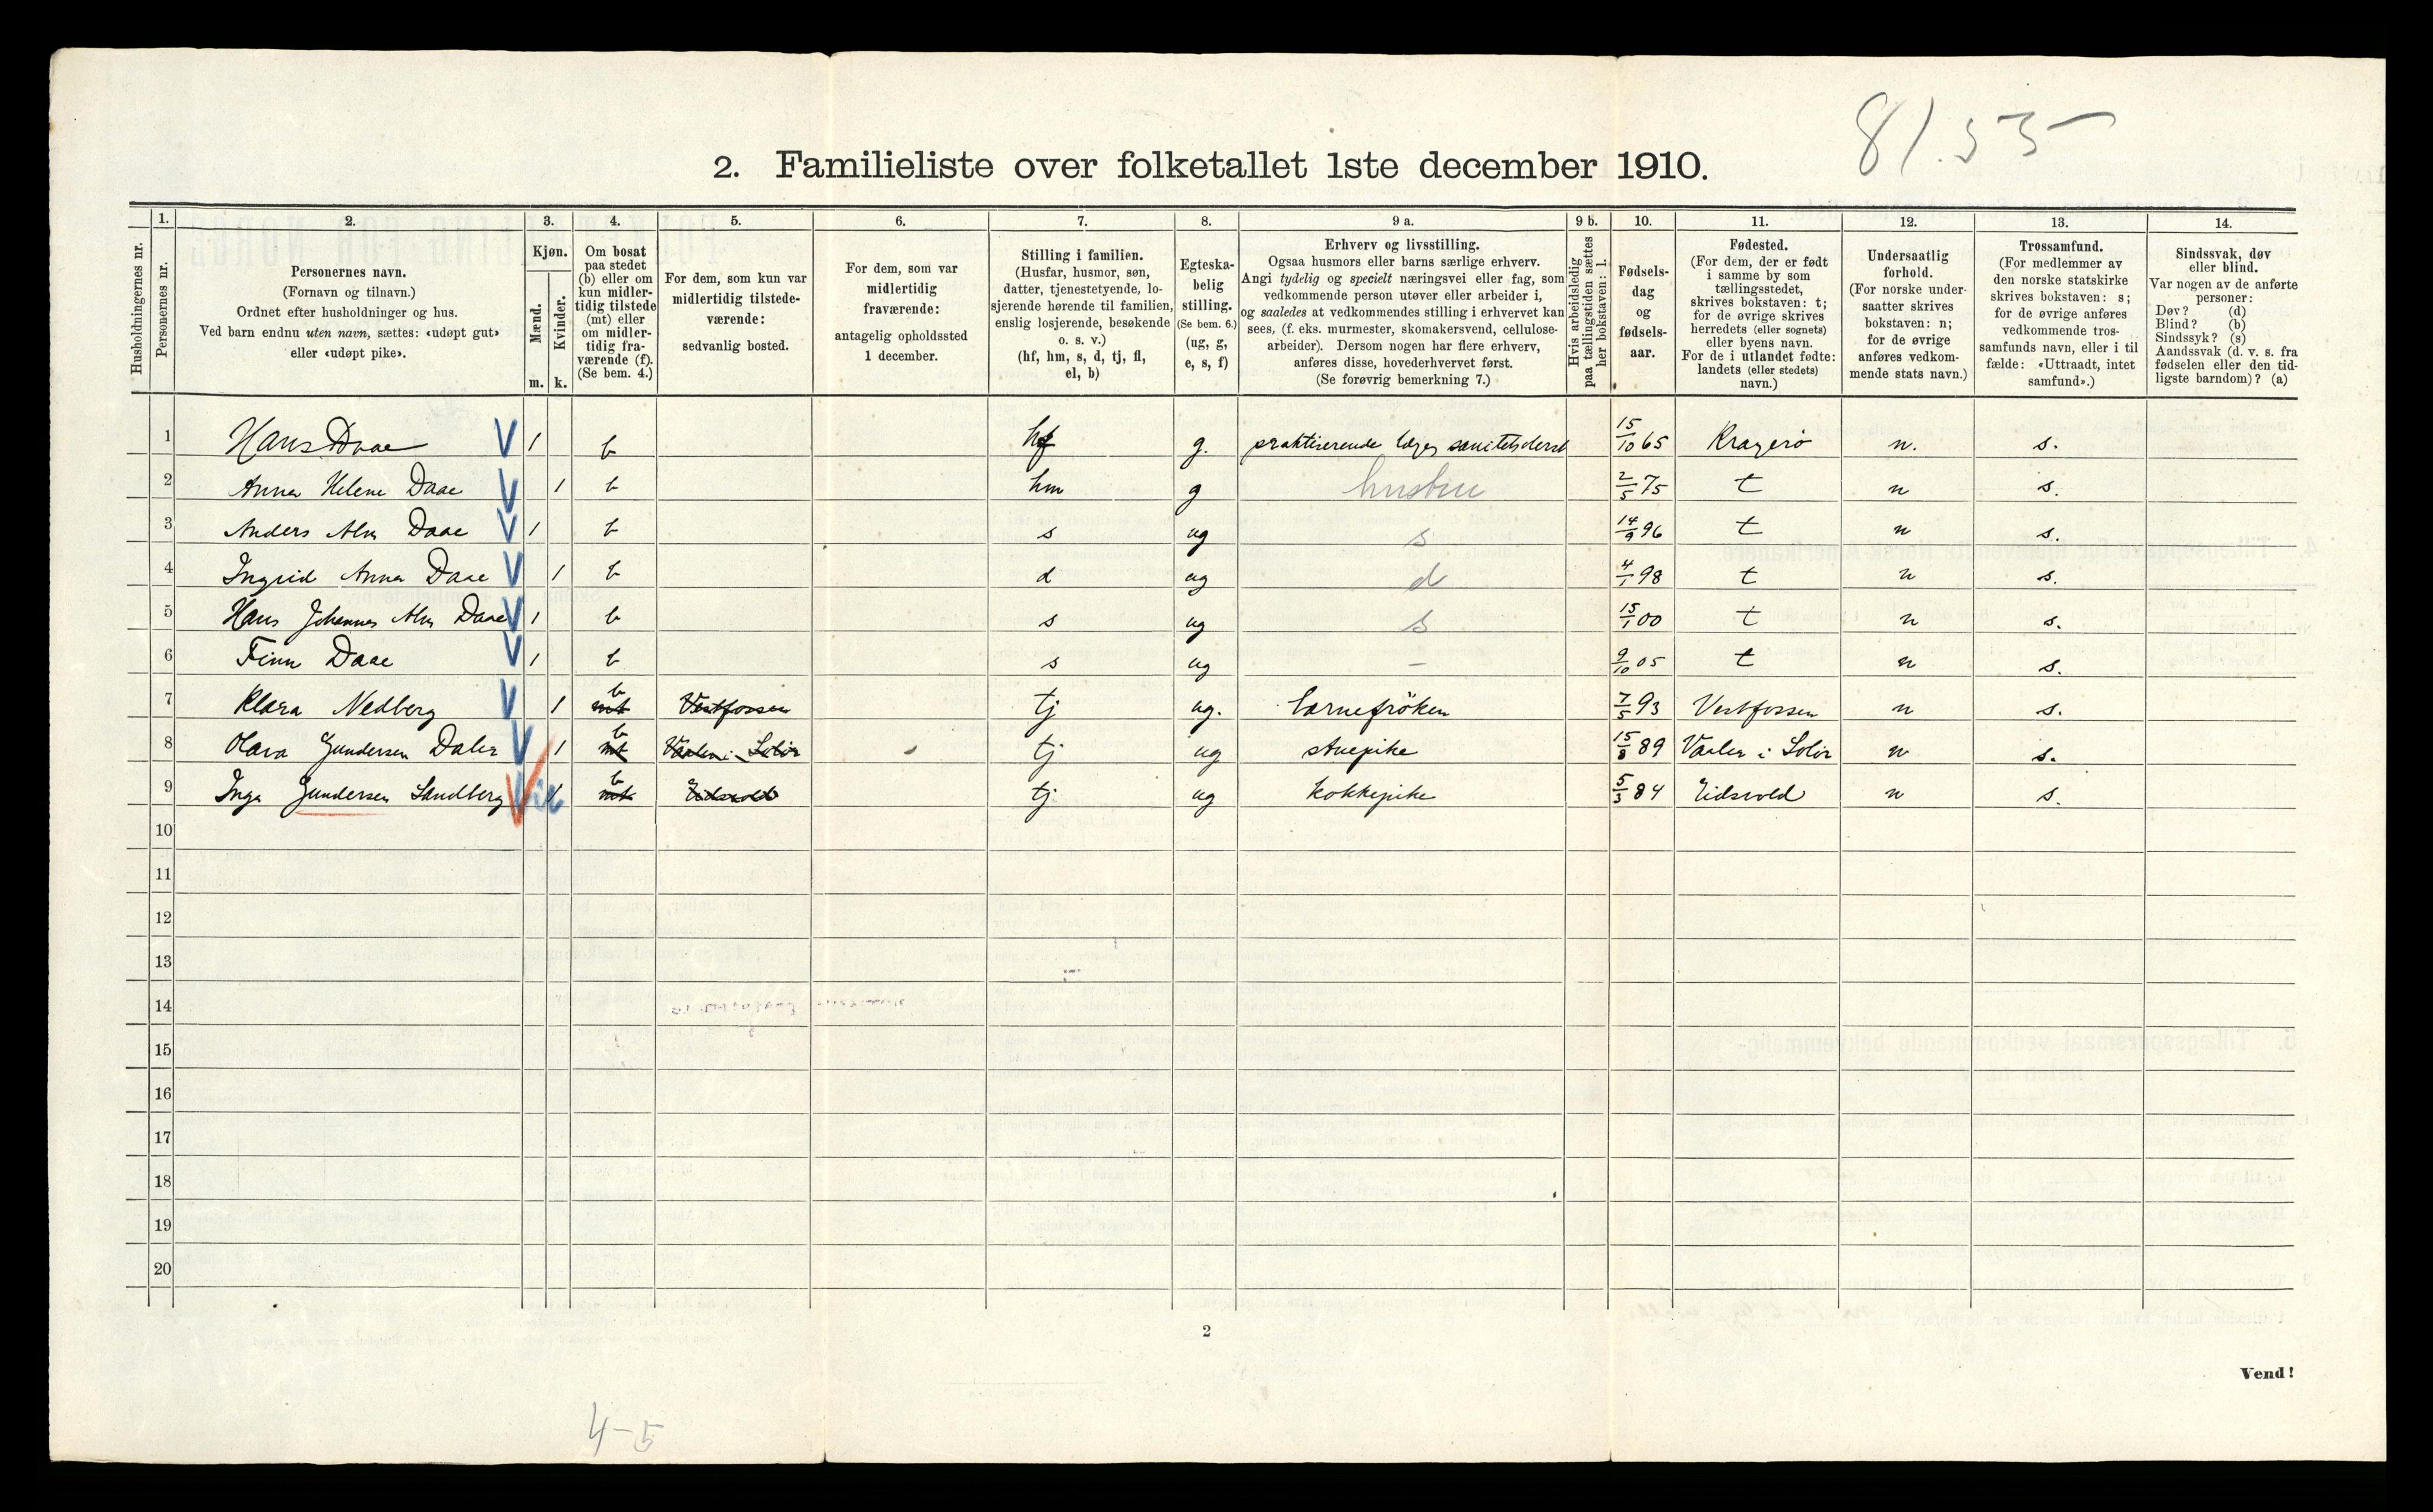 81.55
2. Familieliste over folketallet 1ste december 1910.
Husholdningernes nr.
1. Personernes nr.
2. Personernes navn.
(Fornavn og tilnavn.)
Ordnet efter husholdninger og hus.
Ved barn endnu uten navn, sættes: «udøpt gut»
eller «udøpt pike».
3. Kjøn.
Mænd. m.
Kvinder. k.
4. Om bosat
paa stedet
(b) eller om
kun midler-
tidig tilstede
(mt) eller
om midler-
tidig fra-
værende (f).
(Se bem. 4.)
5. For dem, som kun var
midlertidig tilstede-
værende:
sedvanlig bosted.
6. For dem, som var
midlertidig
fraværende:
antagelig opholdssted
1 december.
7. Stilling i familien.
(Husfar, husmor, søn,
datter, tjenestetyende, lo-
sjerende hørende til familien,
enslig losjerende, besøkende
o. s. v.)
(hf, hm, s, d, tj, fl,
el, b)
8. Egteska-
belig
stilling.
(Se bem. 6.)
(ug, g,
e, s, f)
9 a. Erhverv og livsstilling.
Ogsaa husmors eller barns særlige erhverv.
Angi tydelig og specielt næringsvei eller fag, som
vedkommende person utøver eller arbeider i,
og saaledes at vedkommendes stilling i erhvervet kan
sees, (f. eks. murmester, skomakersvend, cellulose-
arbeider). Dersom nogen har flere erhverv,
anføres disse, hovederhvervet først.
(Se forøvrig bemerkning 7.)
9 b. Hvis arbeidsledig
paa tællingstiden sættes
her bokstaven: l.
10. Fødsels-
dag
og
fødsels-
aar.
11. Fødested.
(For dem, der er født
i samme by som
tællingsstedet,
skrives bokstaven: t;
for de øvrige skrives
herredets (eller sognets)
eller byens navn.
For de i utlandet fødte:
landets (eller stedets)
navn.)
12. Undersaatlig
forhold.
(For norske under-
saatter skrives
bokstaven: n;
for de øvrige
anføres vedkom-
mende stats navn.)
13. Trossamfund.
(For medlemmer av
den norske statskirke
skrives bokstaven: s;
for de øvrige anføres
vedkommende tros-
samfunds navn, eller i til
fælde: «Uttraadt, intet
samfund».)
14. Sindssvak, døv
eller blind.
Var nogen av de anførte
personer:
Døv? (d)
Blind? (b)
Sindssyk? (s)
Aandssvak (d. v. s. fra
fødselen eller den tid-
ligste barndom)? (a)
1 Hans Daae V 1 b hf g. praktiserende læge, 15/10 65 Kragerø n. s.
2 Anna Helene Daae V 1 b hm g hustru 2/5 75 t n s.
3 Anders Alm Daae V 1 b s ug s 14/9 96 t n s.
4 Ingrid Anna Daae V 1 b d ug d 4/1 98 t n s.
5 Hans Johannes Alm Daae V 1 b s ug s 15/1 00 t n s.
6 Finn Daae V 1 b s ug – 9/10 05 t n s.
7 Klara Nedberg V 1 b mt Vestfossen tj ug. barnefröken 7/5 93 Vestfossen n s.
8 Olava Gundersen Daler V 1 b mt Vaaler i Solör tj ug stuepike 15/8 89 Vaaler i Solör n s.
9 Inga Gundersen Sandberg V 1 b mt Eidsvold tj ug kokkepike 5/3 84 Eidsvold n s.
10
11
12
13
14
15
16
17
18
19
20
2
Vend!
4-5